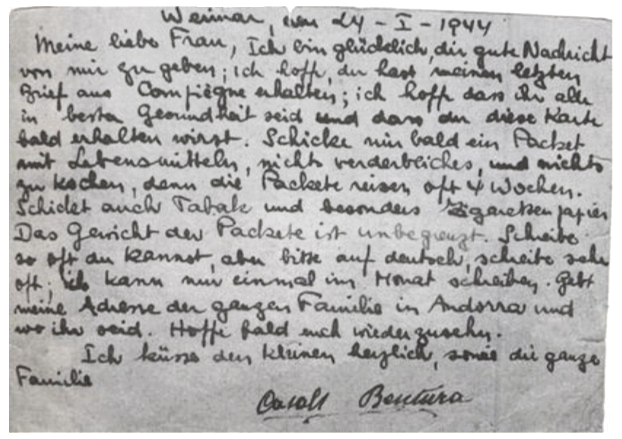 Weimar, den 24 - I - 1944
Meine liebe Frau, Ich bin glücklich, dir gute Nachricht
von mir zu geben; ich hoffe, du hast meinen letzten
Brief aus Compiègne erhalten; ich hoffe dass ihr alle
in bester Gesundheit seid und dass du diese Karte
bald erhalten wirst. Schicke mir bald ein Packet
mit Lebensmitteln, nichts verderbliches, und nichts
zu kochen, denn die Packete reisen oft 4 Wochen.
Schicket auch Tabak und besonders Zigarettenpapier
Das Gewicht der Packete ist unbegrenzt. Schreibe
so oft du kannst, aber bitte auf deutsch, schreibe sehr
oft; ich kann nur einmal im Monat schreiben. Gebt
meine Adresse der ganzen Familie in Andorra und
wo ihr seid. Hoffe bald euch wiederzusehn.
Ich küsse den kleinen herzlich, sowie die ganze
Familie
Casals Bentura